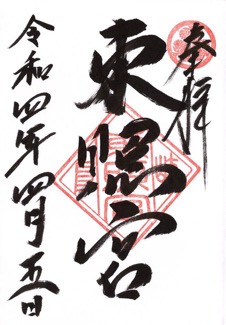 奉拝
東照宮
令和四年四月五日